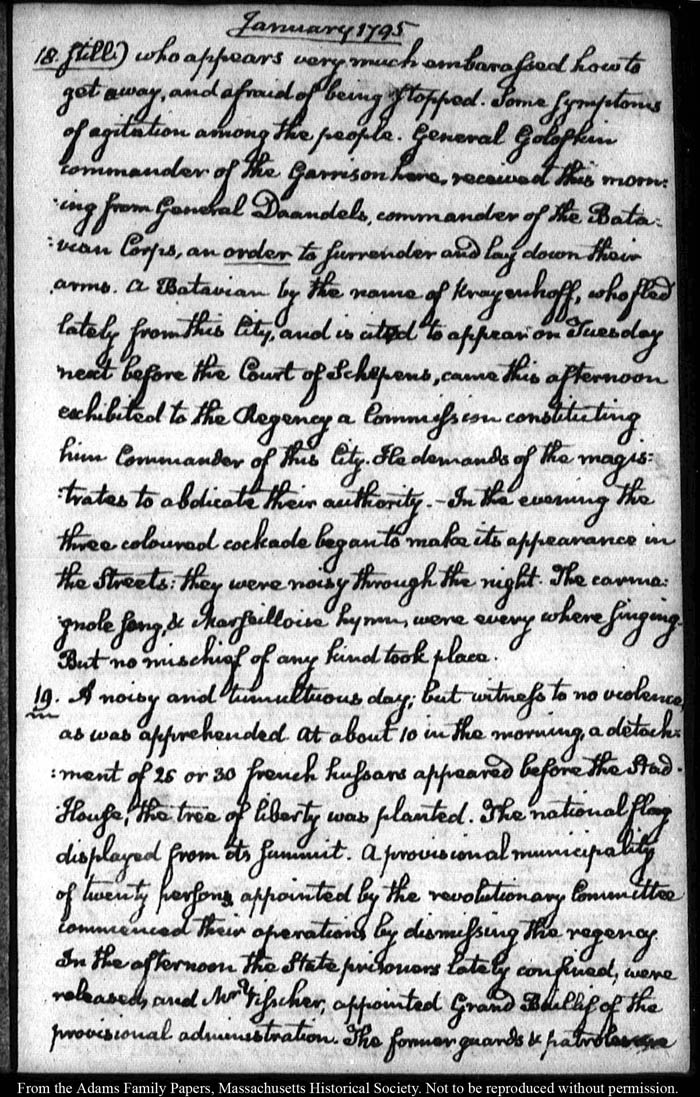 January 1795
18. still) who appears very much embarassed how to
get away, and afraid of being stopped. Some symptoms
of agitation among the people. General Golofkin
commander of the Garrison here, received this morn:
:ing from General Daandels, commander of the Bata:
:vian Corps, an order to surrender and lay down their
arms. A Batavian by the name of Krayenhoff, who fled
lately from this City, and is cited to appear on Tuesday
next before the Court of Schepens, came this afternoon
exhibited to the Regency a Commission constituting
him Commander of this City. He demands of the magis:
:trates to abdicate their authority.—In the evening the
three coloured cockade began to make its appearance in
the Streets: they were noisy through the night. The carma:
:gnole song, & Marseilloise hymn, were every where singing.
But no mischief of any kind took place.
19. A noisy and tumultuous day; but witness to no violence,
as was apprehended. At about 10 in the morning, a detach:
:ment of 25 or 30 french hussars appeared before the Stad
House, the tree of liberty was planted. The national flag
displayed from its summit. A provisional municipality
of twenty persons appointed by the revolutionary Committee
commenced their operations by dismissing the regency
In the afternoon the State prisoners lately confined, were
released, and Mr. Visscher, appointed Grand Bailiff of the
provisional administration. The former guards & patroles
From the Adams Family Papers, Massachusetts Historical Society. Not to be reproduced without permission.